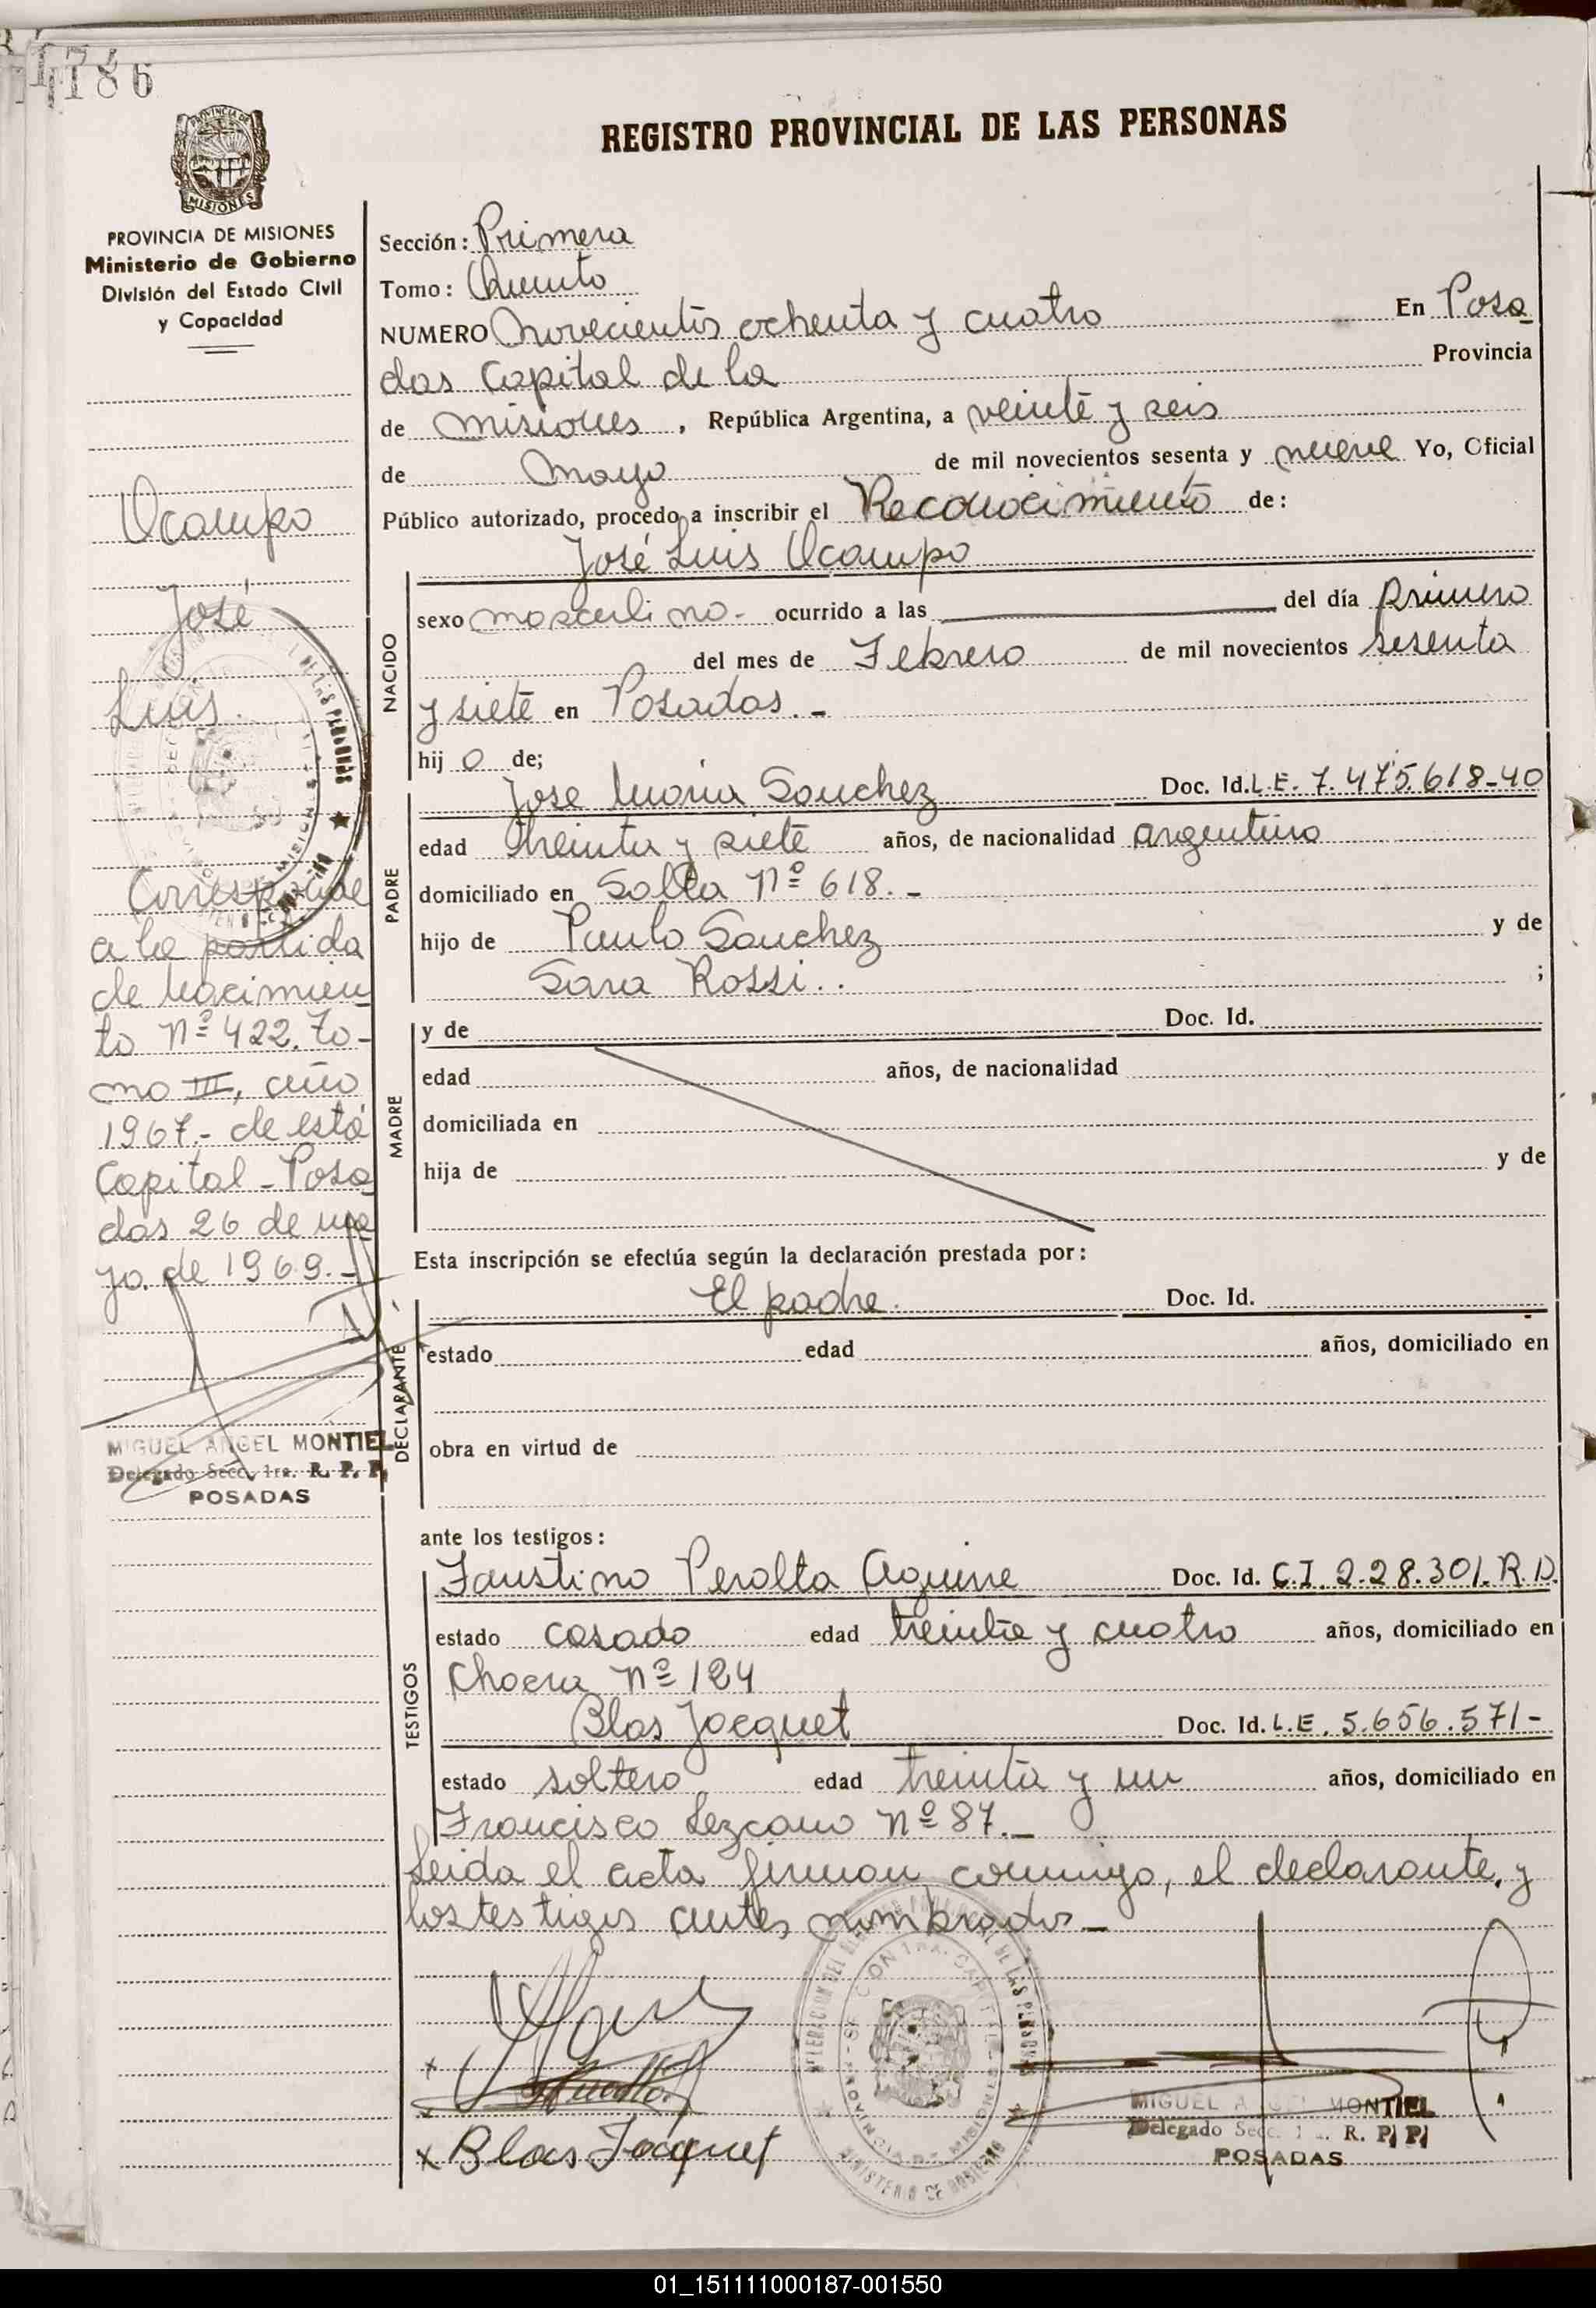 186
REGISTRO PROVINCIAL DE LAS PERSONAS
PROVINCIA DE MISIONES
Ministerio de Gobierno
División del Estado Civil
y Capacidad
Ocampo
José
Luis.
Corresponde
a la partida
de nacimien
to Nº 422. To-
mo III, año
1967.- de está
Capital - Posa
das 26 de ma
yo. de 1969.-
MIGUEL ANGEL MONTIEL
Delegado Secc. 1ra. R. P. P.
POSADAS
Sección: Primera
Tomo: Quinto
NUMERO Novecientos ochenta y cuatro En Posa
das Capital de la Provincia
de Misiones, República Argentina, a veinte y seis
de Mayo de mil novecientos sesenta y nueve Yo, Oficial
Público autorizado, procedo a inscribir el Reconocimiento de:
José Luis Ocampo
NACIDO
sexo masculino- ocurrido a las del día primero
del mes de Febrero de mil novecientos sesenta
y siete en Posadas.-
hij o de;
PADRE
Jose Maria Sanchez Doc. Id. L.E. 7.475.618-40
edad treinta y siete años, de nacionalidad argentino
domiciliado en Salta Nº 618.-
hijo de Paulo Sanchez y de
Sara Rossi.. ;
MADRE
y de Doc. Id.
edad años, de nacionalidad
domiciliada en
hija de y de
Esta inscripción se efectúa según la declaración prestada por:
DECLARANTE
El padre. Doc. Id.
estado edad años, domiciliado en
obra en virtud de
ante los testigos:
TESTIGOS
Faustino Peralta Aguirre Doc. Id. C.I. 228.301. R.D.
estado casado edad treinta y cuatro años, domiciliado en
Chacra Nº 124
Blas Jacquet Doc. Id. L.E. 5.656.571-
estado soltero edad treinta y un años, domiciliado en
Francisco Lezcano Nº 87.-
Leida el acta firman conmigo, el declarante, y
los testigos antes nombrados-
x Blas Jacquet
MIGUEL ANGEL MONTIEL
Delegado Secc. R. P. P.
POSADAS
01_151111000187-001550